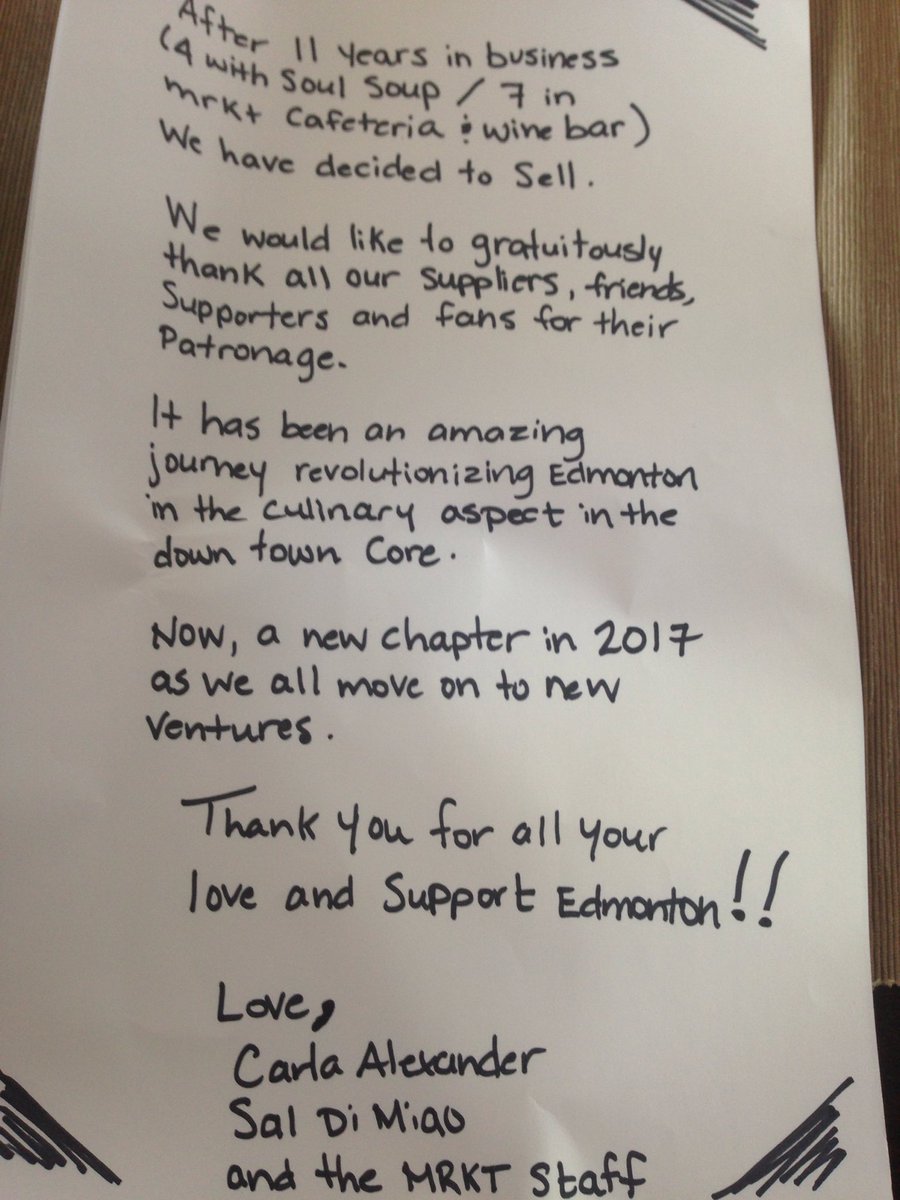 After 11 years in business
(4 with Soul Soup / 7 in
mrkt Cafeteria & wine bar)
We have decided to Sell.
We would like to gratuitously
thank all our Suppliers, friends,
Supporters and fans for their
Patronage.
It has been an amazing
journey revolutionizing Edmonton
in the culinary aspect in the
down town Core.
Now, a new chapter in 2017
as we all move on to new
Ventures.
Thank you for all your
love and Support Edmonton!!
Love,
Carla Alexander
Sal Di Miao
and the MRKT Staff